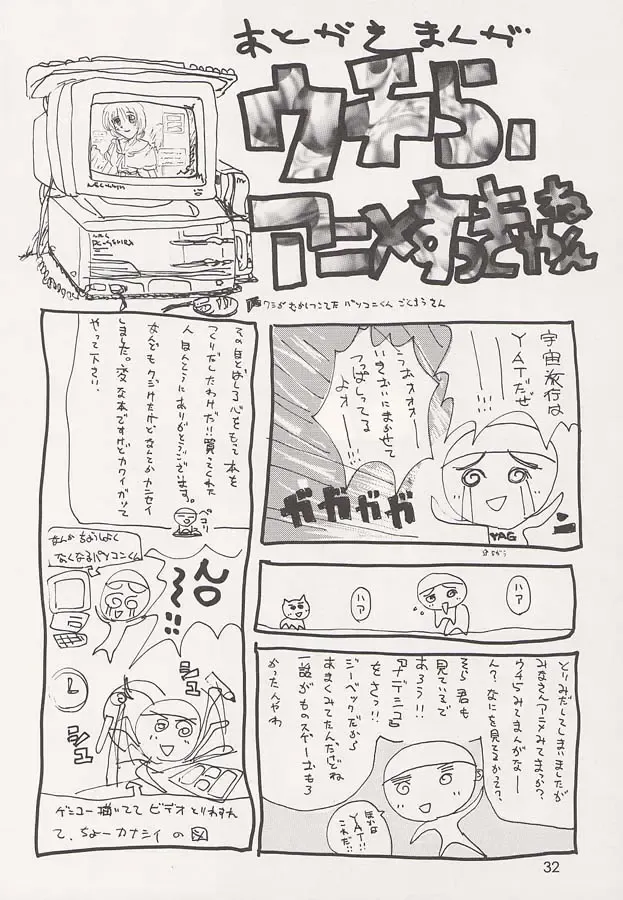 あとがきまんが
ウチら、
アニメすっきやねん
ワシがむかしつこてた パソコンくん ごくろうさん
宇宙旅行は
YATだぜ
うおォオォー
いきおいにまかせて
つっぱしってる
よォー
ガガガガ
YAG
ハア
ハア
とりみだしてしまいましたが
みなさんアニメみてまっか?
ウチらみてまんがなー
ん?なにを見てるかって?
そら君も
見ているで
あろう!!
ナデシコ
をさっ!!
ジーベックだから
あまくみてたんだけどね
一話がものスゲーおもろ
かったんやわ
ほかは
YAT!!
これだ!!
そのほとばしる心をもって本を
つくりだしたわけだ!!買ってくれた
人ほんとうにありがとうございます。
なんどもクジけたけどなんでかカンセイ
しました。変な本ですけどカワイがって
やって下さい。
ペコリ
なんか ちょうしよく
なくなるパソコンくん
シュ
シュ
ゲンコー描いてて ビデオとりわすれ
て、ちょーカナシイ の図
32